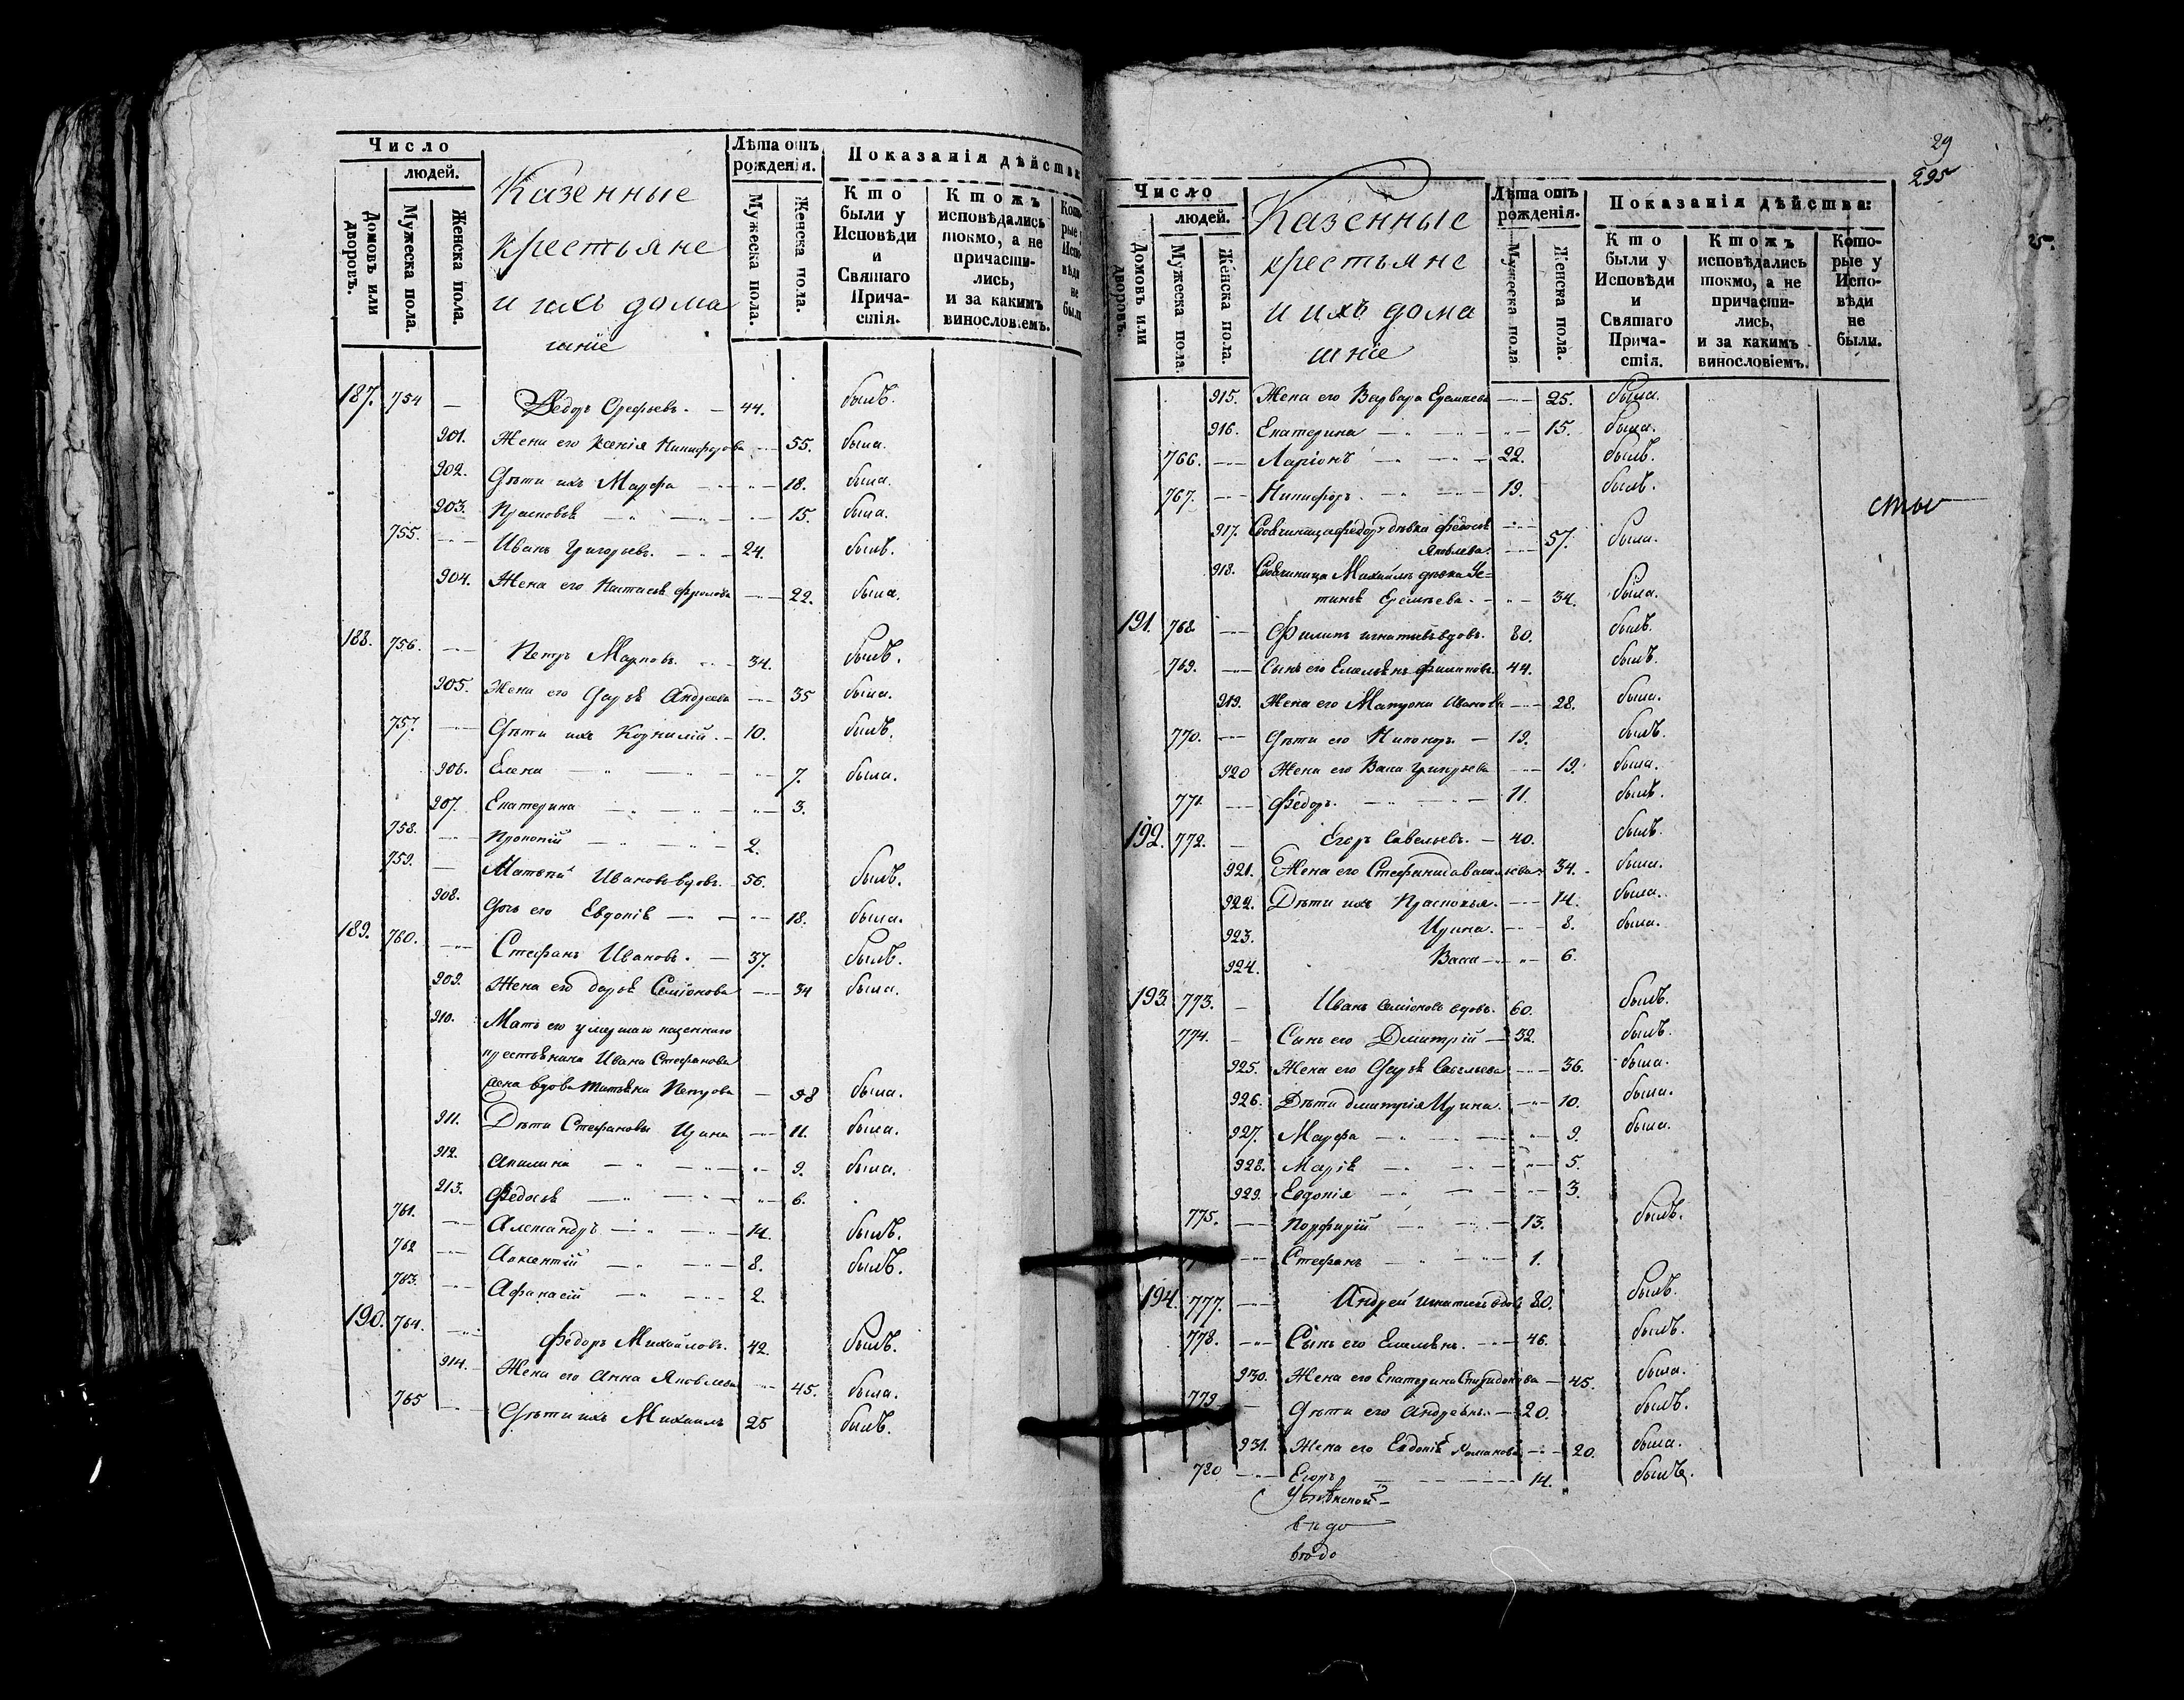 Число
людей.
Домовъ или дворовъ.
Мужеска пола.
Женска пола.
Казенные
крестьяне
и ихъ дома
шніе
Лѣта отъ рожденія.
Мужеска пола.
Женска пола.
Показанія дѣйства
Кто были у Исповѣди и Святаго Причастія.
Ктожъ исповѣдались токмо, а не причастились, и за какимъ винословіемъ.
Которые у Исповѣди не были
187. 754 — Ѳедоръ Орефьевъ. — 44. былъ.
901. Жена его Ксенія Никифорова — 55. была.
902. Дѣти ихъ Марфа — 18. была.
903. Прасковья — 15. была.
755. — Иванъ Григорьевъ. — 24. былъ.
904. Жена его Настасья Фролова — 22. была.
188. 756. — Петръ Марковъ. — 34. былъ.
905. Жена его Дарья Андреева — 35 была.
757. — Дѣти ихъ Корнилій. — 10. былъ.
906. Елена — 7. была.
907. Екатерина — 3.
758. — Прокопій — 2.
759. — Матвѣй Ивановъ вдовъ. 56. былъ.
908. Дочь его Евдокія — 18. была.
189. 760. — Стефанъ Ивановъ. — 37. былъ.
909. Жена его Дарья Семіонова — 34 была.
910. Мать его умершаго казеннаго
крестьянина Ивана Стефанова
жена вдова Татьяна Петрова — 98 была.
911. Дѣти Стефановы Ирина — 11. была.
912. Акилина — 9. была.
913. Федосья — 6.
761. — Александръ — 14. былъ.
762 — Авксентій — 8. былъ.
763. — Афанасій — 2.
190. 764. — Федоръ Михайловъ. 42. былъ.
914. Жена его Анна Яковлева — 45. была.
765 — Дѣти ихъ Михаилъ 25 былъ.
29
295
Число
людей.
Домовъ или дворовъ.
Мужеска пола.
Женска пола.
Казенные
крестьяне
и ихъ дома
шніе
Лѣта отъ рожденія.
Мужеска пола
Женска пола.
Показанія дѣйства:
Кто были у Исповѣди и Святаго Причастія.
Ктожъ исповѣдались токмо, а не причастились, и за какимъ винословіемъ.
Которые у Исповѣди не были.
25.
915. Жена его Варвара Еремеева — 25. была.
916. Екатерина — 15. была.
766. — Ларіонъ — 22. былъ.
767. — Никифоръ. — 19. былъ.
917. Федор дѣвка Федосья
Яковлева. — 57. была.
918. Михайлы Ус=
тинья Еремеева. — 34. была.
191. 768. — Филипъ Игнатьевъ вдовъ. 80. былъ.
769. — Сынъ его Емельянъ Филиповъ. 44. былъ.
919. Жена его Матрона Иванова — 28. была.
770. — Дѣти его Никоноръ. — 19. былъ.
920 Жена его Васа Григорьева — 19. была.
771. — Федоръ. — 11. былъ.
192. 772. — Егоръ Савельевъ. — 40. былъ.
921. Жена его Стефанида — 34. была.
922. Дѣти ихъ Прасковья. — 14. была.
923. Ирина. — 8. была.
924. Васа — 6.
193. 773. — Иванъ Семіоновъ вдовъ. 60. былъ.
774. — Сынъ его Дмитрій — 32. былъ.
925. Жена его Дарья Савельева — 36. была.
926. Дѣти Дмитрія Ирина. — 10. была.
927. Марфа — 9. была.
928. Марія — 5.
929. Евдокія — 3.
775. — Порфирій — 13. былъ.
— Стефанъ — 1.
194. 777. — Андрей Игнатьевъ вдовъ 80. былъ.
778. — Сынъ его Емельянъ. — 46. былъ.
930. Жена его Екатерина Спиридонова — 45. была.
779 — Дѣти его Андреянъ. — 20. былъ.
931. Жена его Евдокія Романова — 20. была.
780 — Егоръ — 14. былъ.